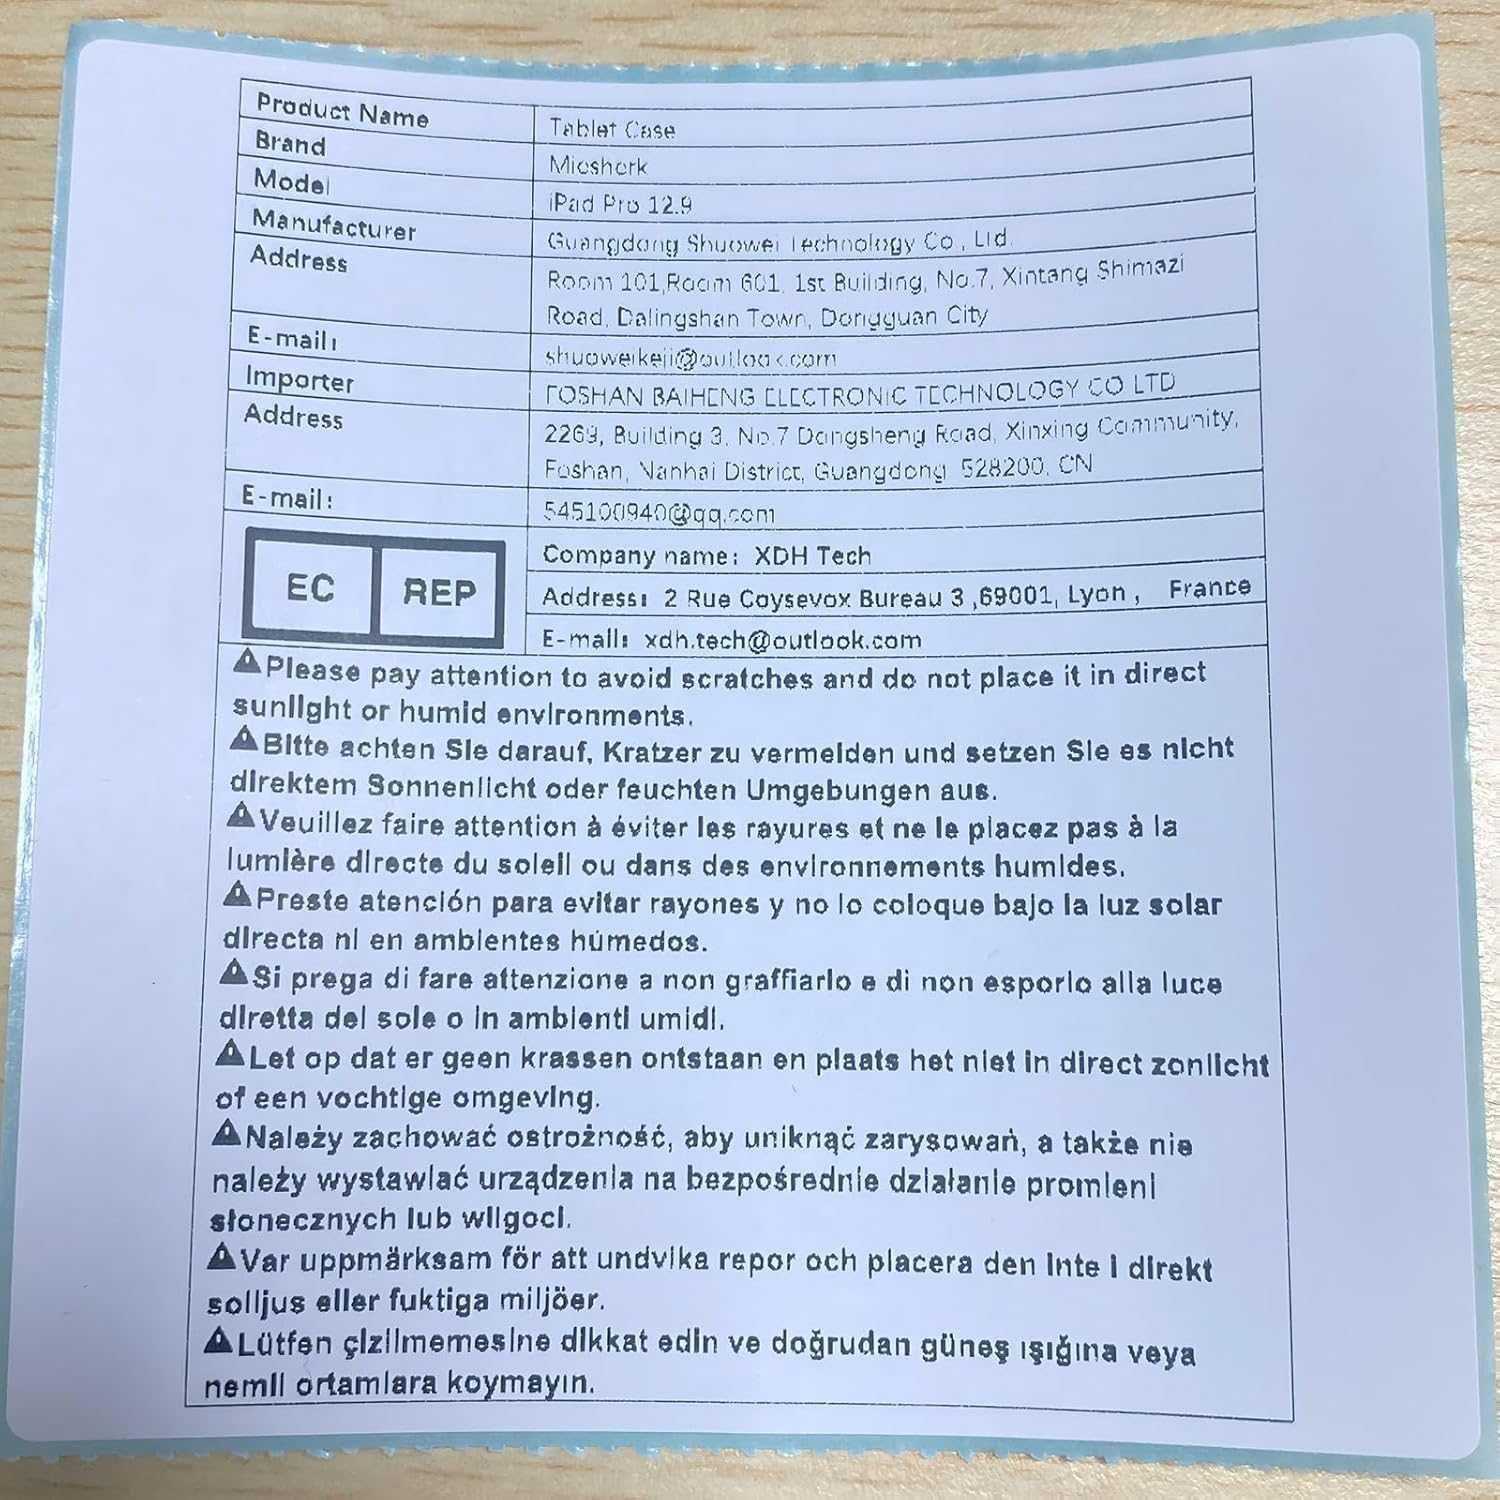 Product Name Tablet Case
Brand Miesherk
Model iPad Pro 12.9
Manufacturer Guangdong Shuowei Technology Co., Ltd.
Address Room 101,Room 601, 1st Building, No.7, Xintang Shimazi
Road, Dalingshan Town, Dongguan City
E-mail: shuoweikeji@outlook.com
Importer FOSHAN BAIHENG ELECTRONIC TECHNOLOGY CO LTD
Address 2269, Building 3, No.7 Dongsheng Road, Xinxing Community,
Foshan, Nanhai District, Guangdong 528200, CN
E-mail: 545100940@qq.com
EC REP
Company name: XDH Tech
Address: 2 Rue Coysevox Bureau 3 ,69001, Lyon , France
E-mail: xdh.tech@outlook.com
Please pay attention to avoid scratches and do not place it in direct
sunlight or humid environments.
Bitte achten Sie darauf, Kratzer zu vermeiden und setzen Sie es nicht
direktem Sonnenlicht oder feuchten Umgebungen aus.
Veuillez faire attention à éviter les rayures et ne le placez pas à la
lumière directe du soleil ou dans des environnements humides.
Preste atención para evitar rayones y no lo coloque bajo la luz solar
directa ni en ambientes húmedos.
Si prega di fare attenzione a non graffiarlo e di non esporlo alla luce
diretta del sole o in ambienti umidi.
Let op dat er geen krassen ontstaan en plaats het niet in direct zonlicht
of een vochtige omgeving.
Należy zachować ostrożność, aby uniknąć zarysowań, a także nie
należy wystawiać urządzenia na bezpośrednie działanie promieni
słonecznych lub wilgoci.
Var uppmärksam för att undvika repor och placera den inte i direkt
solljus eller fuktiga miljöer.
Lütfen çizilmemesine dikkat edin ve doğrudan güneş ışığına veya
nemli ortamlara koymayın.